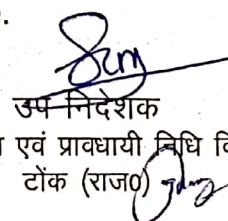 उप निदेशक
एवं प्रावधायी निधि वि
टोंक (राज0)